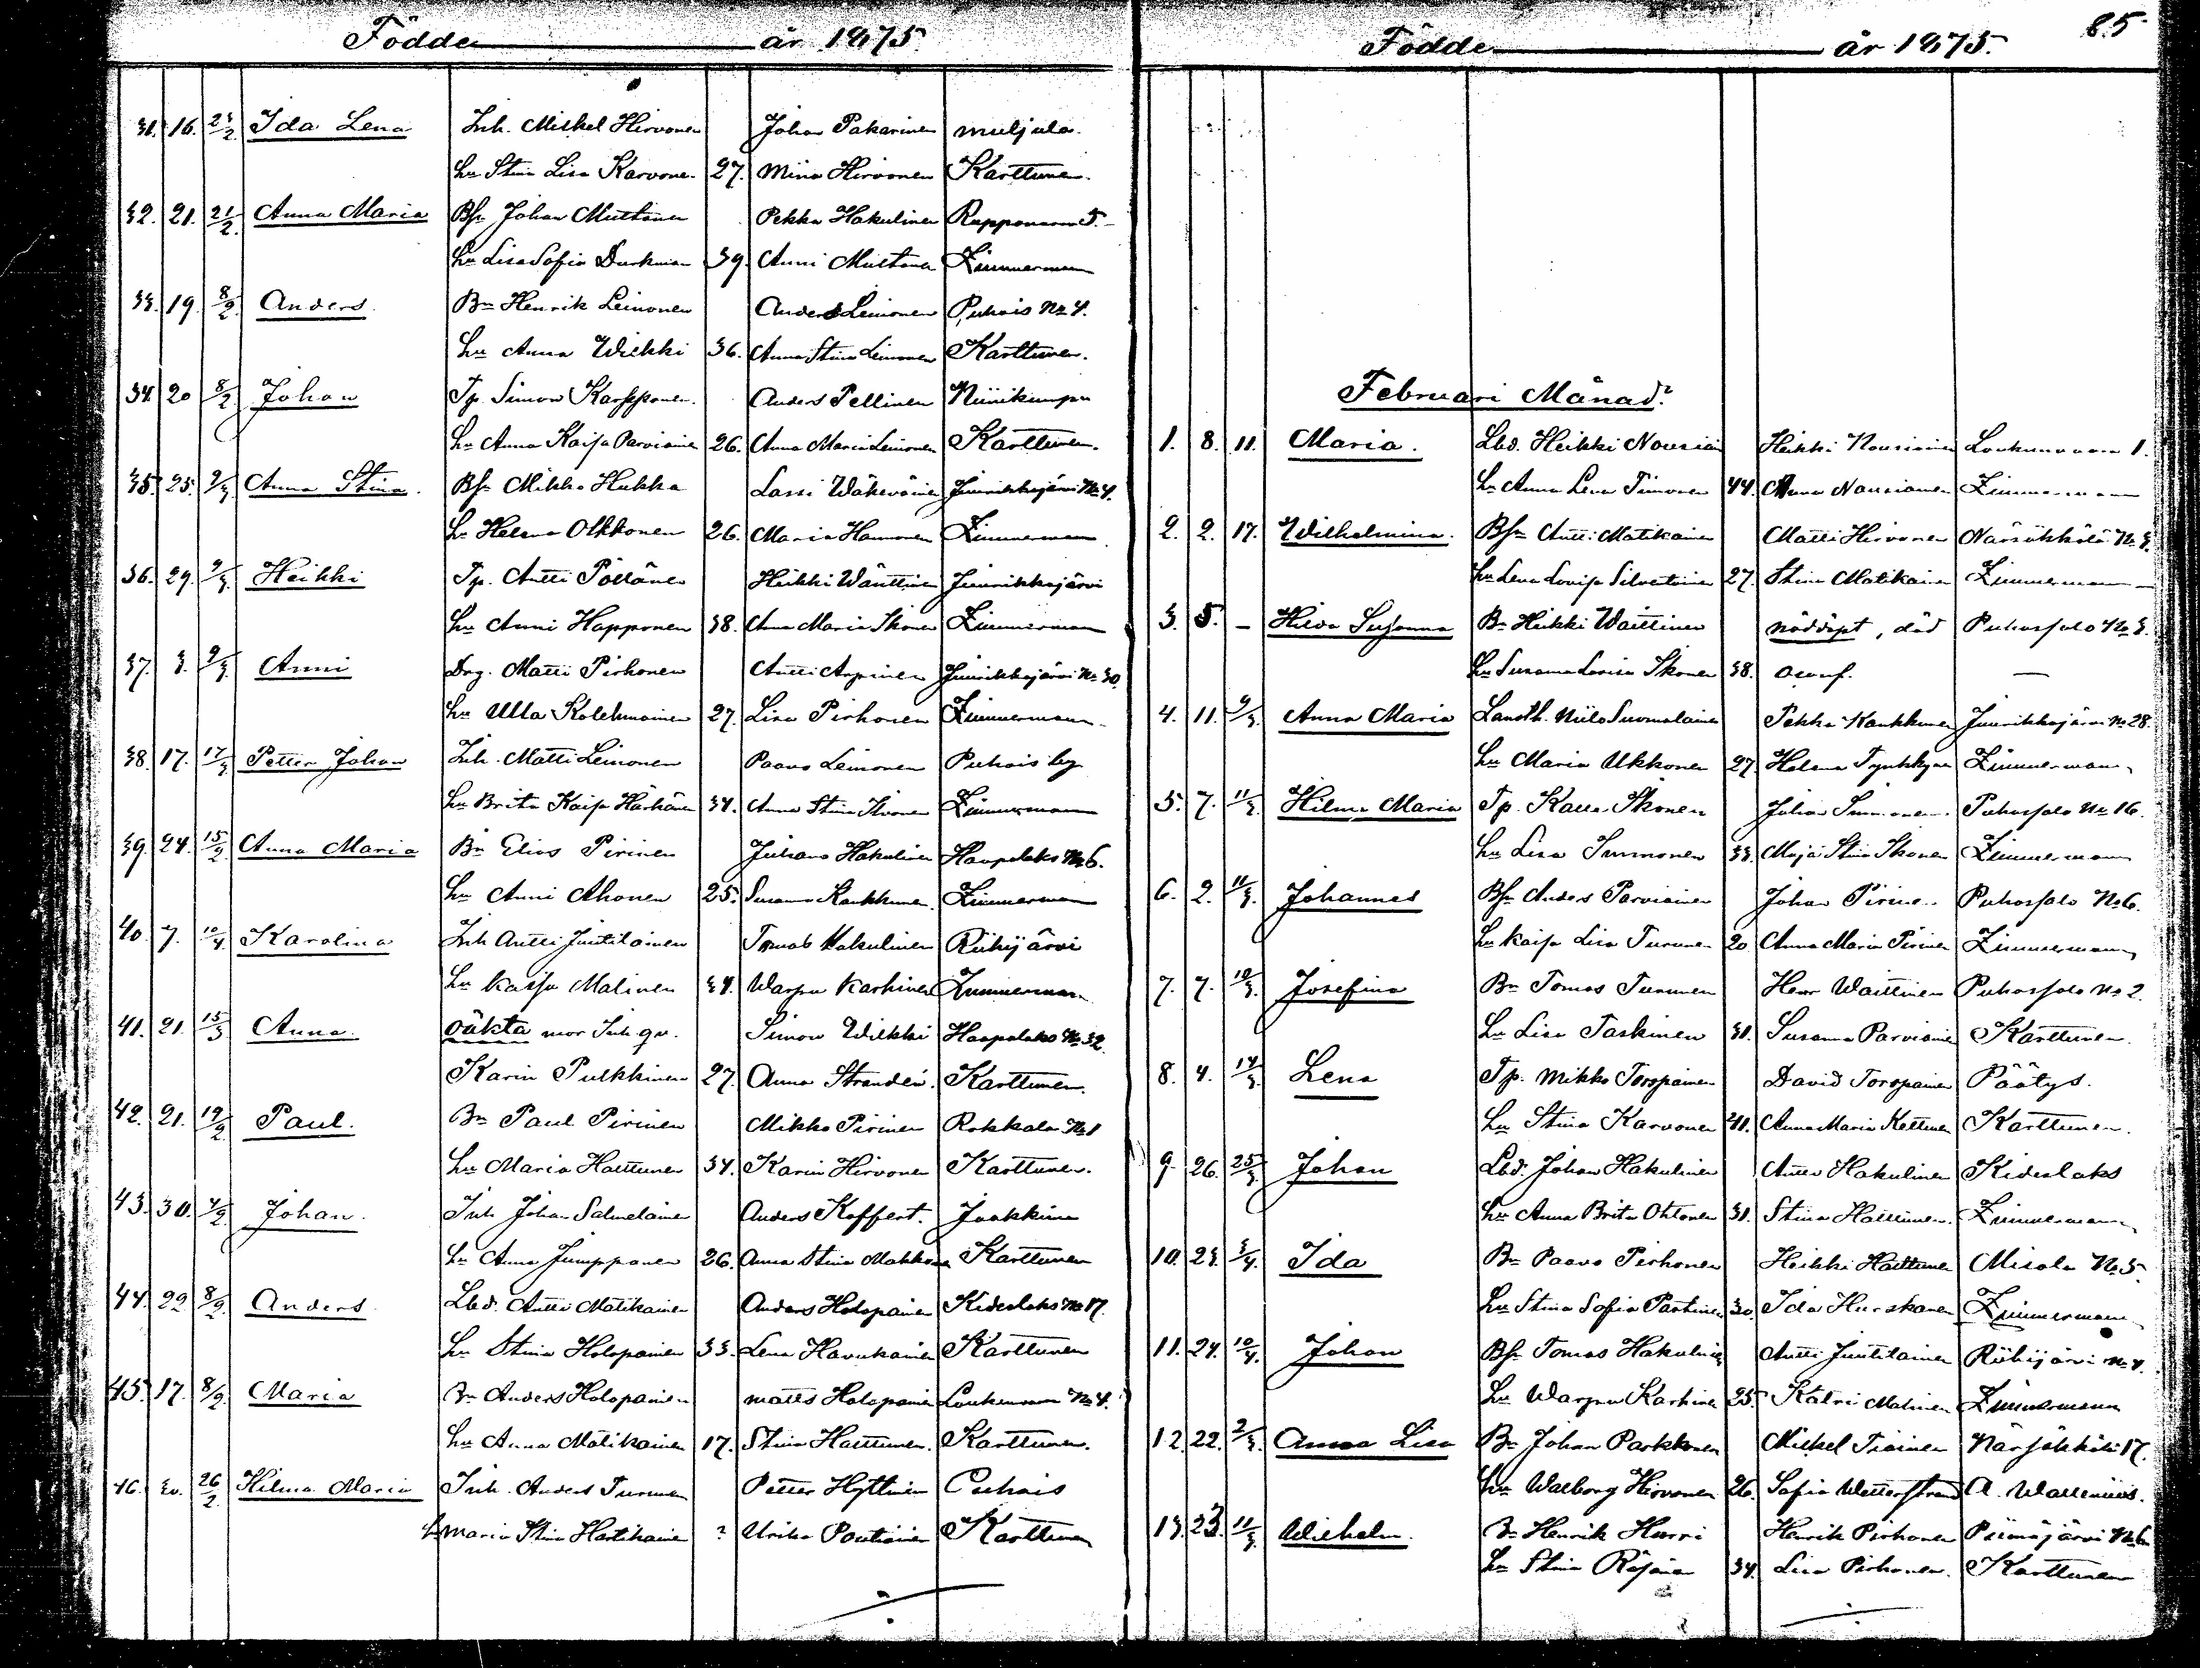 Födde år 1875
31. 16. 23/2 Ida Lena Inh. Mickel Hirvonen Johan Pakarinen muljula.
hu Stina Lisa Karvone. 27. Mina Hirvonen Karttunen.
32. 21. 21/2. Anna Maria Bsn Johan Mustonen Pekka Hakulinen 5.
hu Lisa Sofia 39. Anni Mustonen Zimmermann
33. 19. 8/2 Anders. Bn Henrik Leinonen Anders Leinonen Puhois No 4.
hu Anna Wilkki 36. Anna Stina Leinonen Karttunen.
34. 20 8/2 Johan Tp. Simon Karpponen. Anders Pellinen Niinikumpu
hu Anna Kaisa Parviainen 26. Anna Maria Leinonen Karttunen.
35. 25. 2/3 Anna Stina. Bsn Mikko Hukka Lassi Wäkeväinen Juurikkajärvi No 4.
hu Helena Olkkonen 26. Maria Hamonen Zimmermann
36. 29. 2/3. Heikki Tp. Antti Pöllänen Heikki Wänttinen Juurikkajärvi
hu Anni Happonen 38. Anna Maria Ikonen Zimmermann
37. 3. 2/3. Anni Drg. Matti Pirhonen Antti Arpinen Juurikkajärvi No 30.
hu Ulla Kolehmainen 27. Lisa Pirhonen Zimmermann
38. 17. 17/3 Petter Johan Inh. Matti Leinonen Paavo Leinonen Puhois by
hu Brita Kaisa Härkönen 34. Anna Stina Zimmermann
39. 24. 15/2. Anna Maria Bn Elias Pirinen Juhana Hakulinen Haapalaks No 6.
hu Anni Ahonen 25. Susanna Kaukkunen. Zimmermann
40. 7. 10/4 Karolina Inh Antti Juutilainen Tomas Hakulinen Riihijärvi
hu Kaisa Malinen 34. Warpu Karhinen Zimmermann
41. 21. 15/3 Anna. oäkta mor Inh. qv. Simon Wilkki Haapalaks No 32.
Karin Pulkkinen 27. Anna Strandén. Karttunen.
42. 21. 19/2. Paul. Bn Paul Pirinen Mikko Pirinen Rokkala No 1
hu Maria Hattunen 34. Karin Hirvonen Karttunen.
43. 30. 7/2. Johan. Inh Johan Salmelainen Anders Koffert. Jaakkima
hu Anna Jumppanen 26. Anna Stina Makkonen Karttunen
44. 22 8/2. Anders. Lbd. Antti Matikainen Anders Holopainen Kideslaks No 17.
hu Stina Holopainen 33. Lena Havukainen Karttunen
45. 17. 8/2. Maria Bn Anders Holopainen matts Holopainen Loukunvaara No 4.
hu Anna Matikainen 17. Stina Hattunen. Karttunen.
46. 30. 26/2. Hilma Maria Inh. Anders Turunen Petter Hyttinen Puhois
hu Maria Stina Hartikainen ? Ulrika Poutiainen Karttunen
Födde år 1875. 85
Februari Månad.
1. 8. 11. Maria. Lbd. Heikki Nousiain Heikki Nousiainen Loukunvaara 1.
hu Anna Lena Timonen 44. Anna Nousiainen Zimmermann
2. 2. 17. Wilhelmina. Bsn Antti Matikainen Matti Hirvonen Närsäkkälä No 3.
hu Lena Lovisa Silventoinen 27. Stina Matikainen Zimmermann
3. 5. - Hilda Susanna Bn Heikki Waittinen nöddöpt, död Puhossalo No 3.
hu Susanna Lovisa Ikonen 38. oconf. —
4. 11. 2/3. Anna Maria Landth. Niilo Suomalainen Pekka Kaukkunen Juurikkajärvi No 28.
hu Maria Ukkonen 27. Helena Tynkkynen Zimmermann
5. 7. 11/3. Hilma Maria Tp. Kalle Ikonen Johan Immonen. Puhossalo No 16.
hu Lisa Immonen 33. Maja Stina Ikonen Zimmermann
6. 2. 11/3. Johannes Bsn Anders Parviainen Johan Pirinen Puhossalo No 6.
hu Kaisa Lisa Turunen 20 Anna Maria Pirinen Zimmermann
7. 7. 10/3. Josefina Bn Tomas Turunen Henr Waittinen Puhossalo No 2.
hu Lisa Taskinen 31. Susanna Parviainen Karttunen.
8. 4. 14/3. Lena Tp. Mikko Torspainen David Torspainen Päätys.
hu Stina Karvonen 41. Anna Maria Kettunen Karttunen.
9. 26. 25/3. Johan Lbd. Johan Hakulinen Antti Hakulinen Kideslaks
hu Anna Brita Ohtonen 31. Stina Hattunen. Zimmermann
10. 23. 3/4. Ida Bn Paavo Pirhonen Heikki Hattunen Misola No 5.
hu Stina Sofia Partinen 30. Ida Hurskanen Zimmermann
11. 24. 10/4. Johan Bsn Tomas Hakulinen Antti Juutilainen Riihijärvi No 4.
hu Warpu Karhinen 25. Katri Malinen Zimmermann
12. 22. 2/3. Anna Lisa Bn Johan Parkkonen Mickel Tiainen Närsäkkälä 17.
hu Walborg Hirvonen 26. Sofia Wetterstrand A. Wallenius.
13. 23. 11/3. Wilhelm. Bn Henrik Hurri Henrik Pirhonen Piimäjärvi No 6
hu Stina Räsänen 34. Lisa Pirhonen. Karttunen